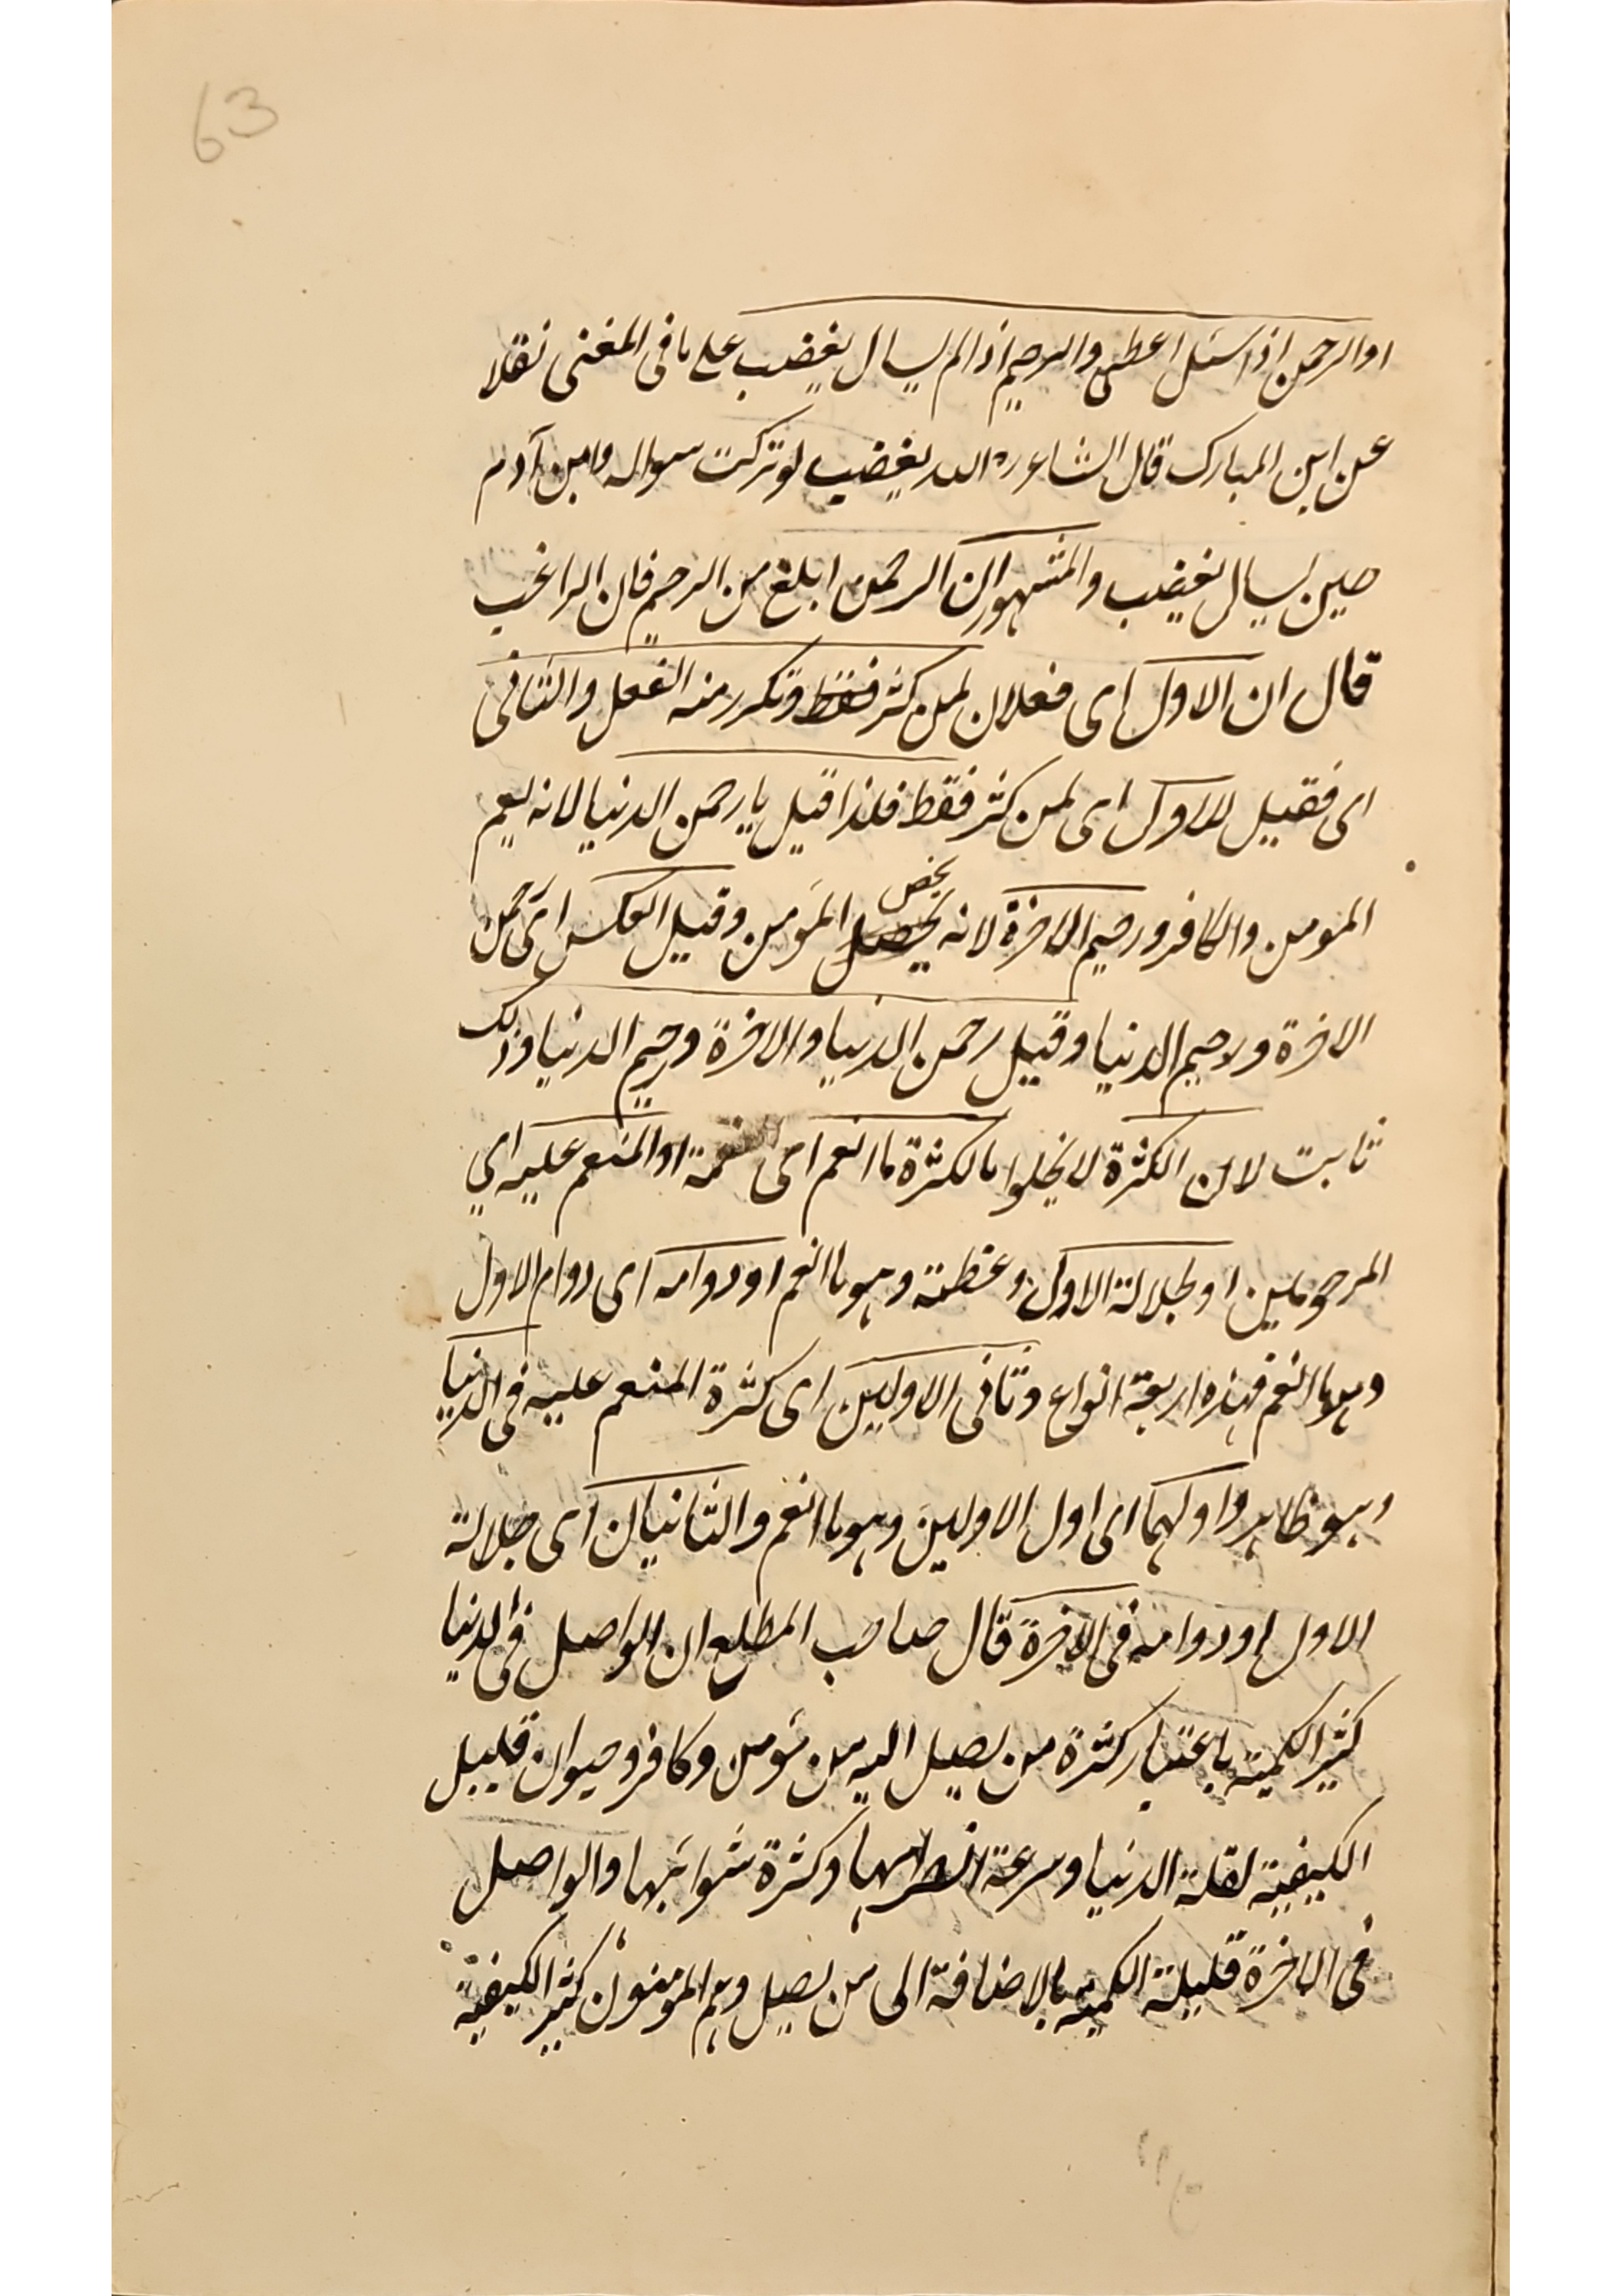 63
او الرحمن اذا سئل اعطى والرحيم اذا لم يسال يغضب على ما فى المغنى نقلا
عن ابن المبارك قال الشاعر الله يغضب لو تركت سواله وابن آدم
حين يسال يغضب والمشهور ان الرحمن ابلغ من الرحيم فان الراغب
قال ان الاول اى فعلان لمن كثر فقط وتكرر منه الفعل والثانى
اى فعيل للاول اى لمن كثر فقط فلذا قيل يا رحمن الدنيا لانه يعم
المومن والكافر ورحيم الاخرة لانه يخص المؤمن وقيل العكس اى رحمن
الاخرة ورحيم الدنيا وقيل رحمن الدنيا والاخرة ورحيم الدنيا وذلك
ثابت لان الكثرة لا يخلوا بالكثرة ما انعم اى نعمة او المنعم عليه اي
المرحومين او لجلالة الاول وعظمته وهو ما انعم او دوامه اى دوام الاول
وهو ما انعم فهذه اربعة انواع وثانى الاوليين اى كثرة المنعم عليه فى الدنيا
وهو ظاهر واولهما اى اول الاوليين وهو ما انعم والثانيان اى جلالة
الاول او دوامه فى الاخرة قال صاحب المطلع ان الواصل فى الدنيا
كثير الكمية باعتبار كثرة من يصل اليه من مؤمن وكافر وحيوان قليل
الكيفية لقلة الدنيا وسرعة وكثرة شوائبها والواصل
فى الاخرة قليلة الكمية بالاضافة الى من يصل وهم المومنون كثير الكيفية